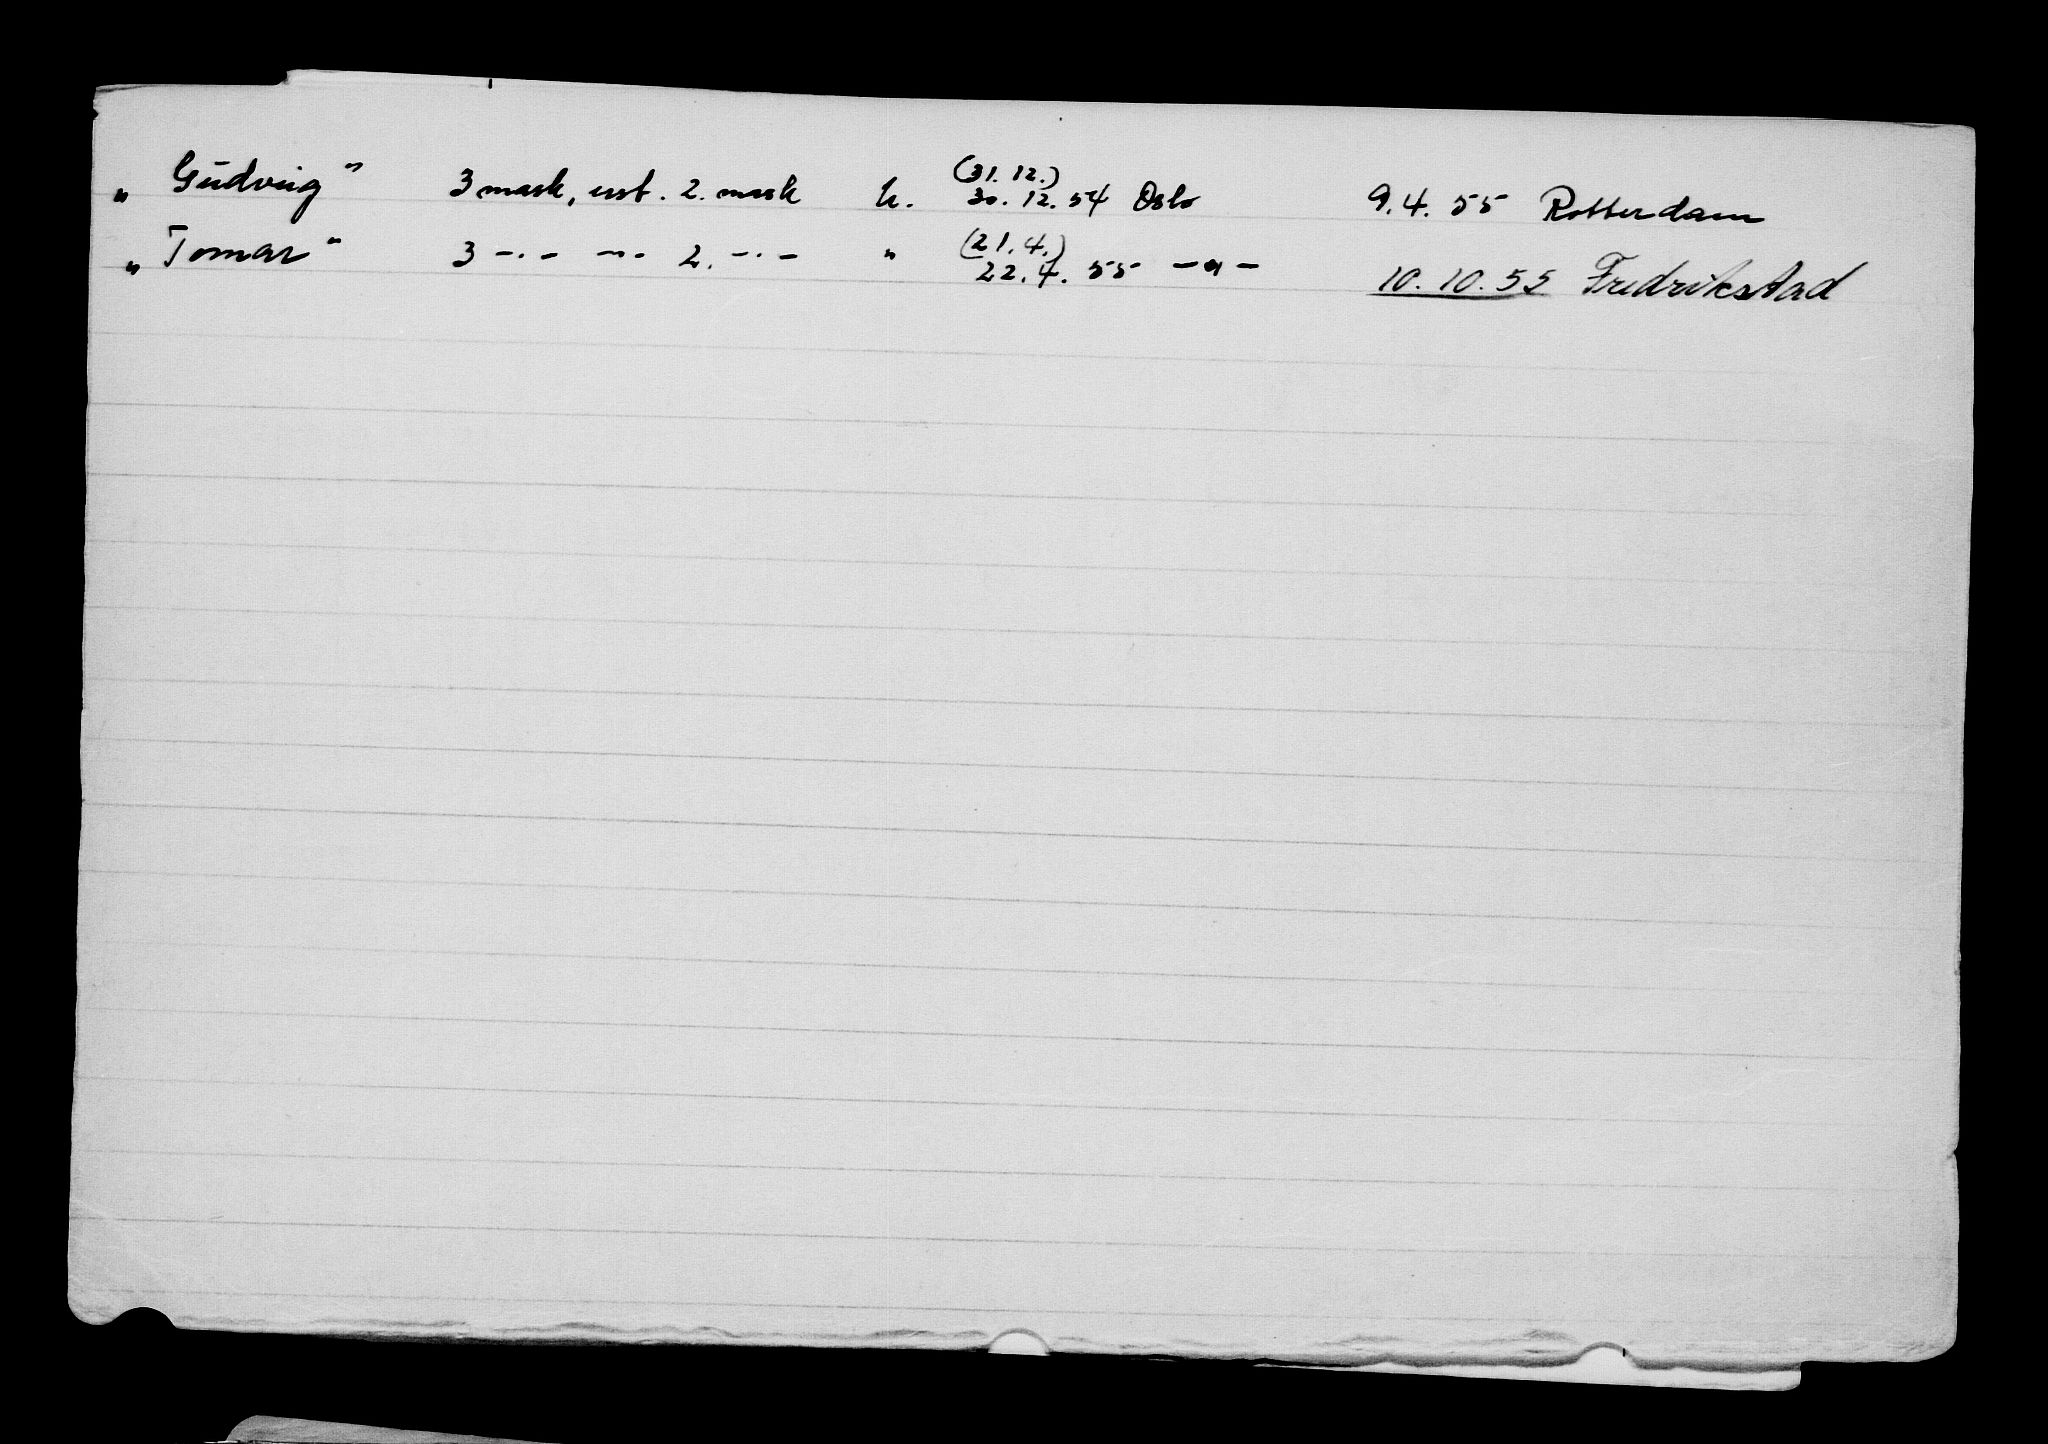 „Gudveig" 3 mask, asst. 2. mask h. (31.12.) 30.12.54 Oslo 9.4.55 Rotterdam
„Tomar" 3 -·- -"- 2. -·- " (21.4.) 22.4.55 -"- 10.10.55 Fredrikstad